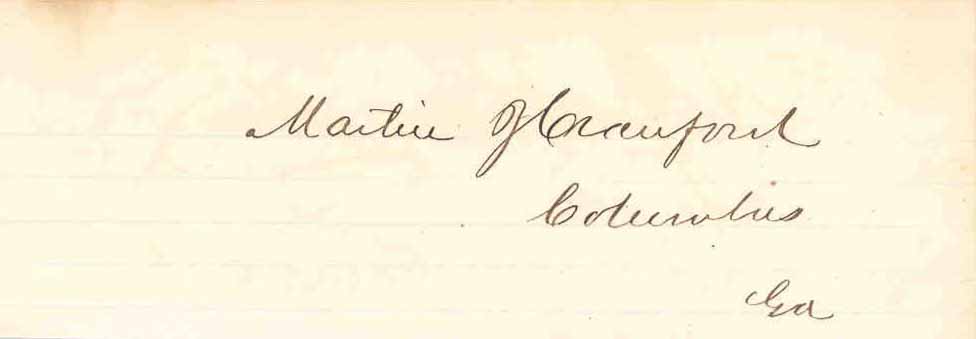 Martin J Crawford
Columbus
Ga